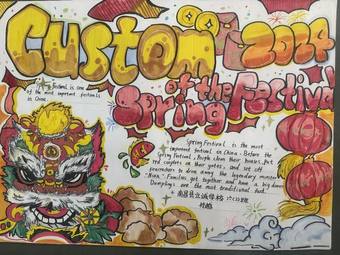 Custom 2024
of the
Spring Festival
Festival is one
of the most important festivals
in China.
Spring Festival is the most
important festival in China. Before the
Spring Festival, People clean their houses, put
red couplets on their gates, and set off
firecrackers to drive away the legendary monster
"Nian." Families get together and have a big dinner
Dumplings are the most traditional food.